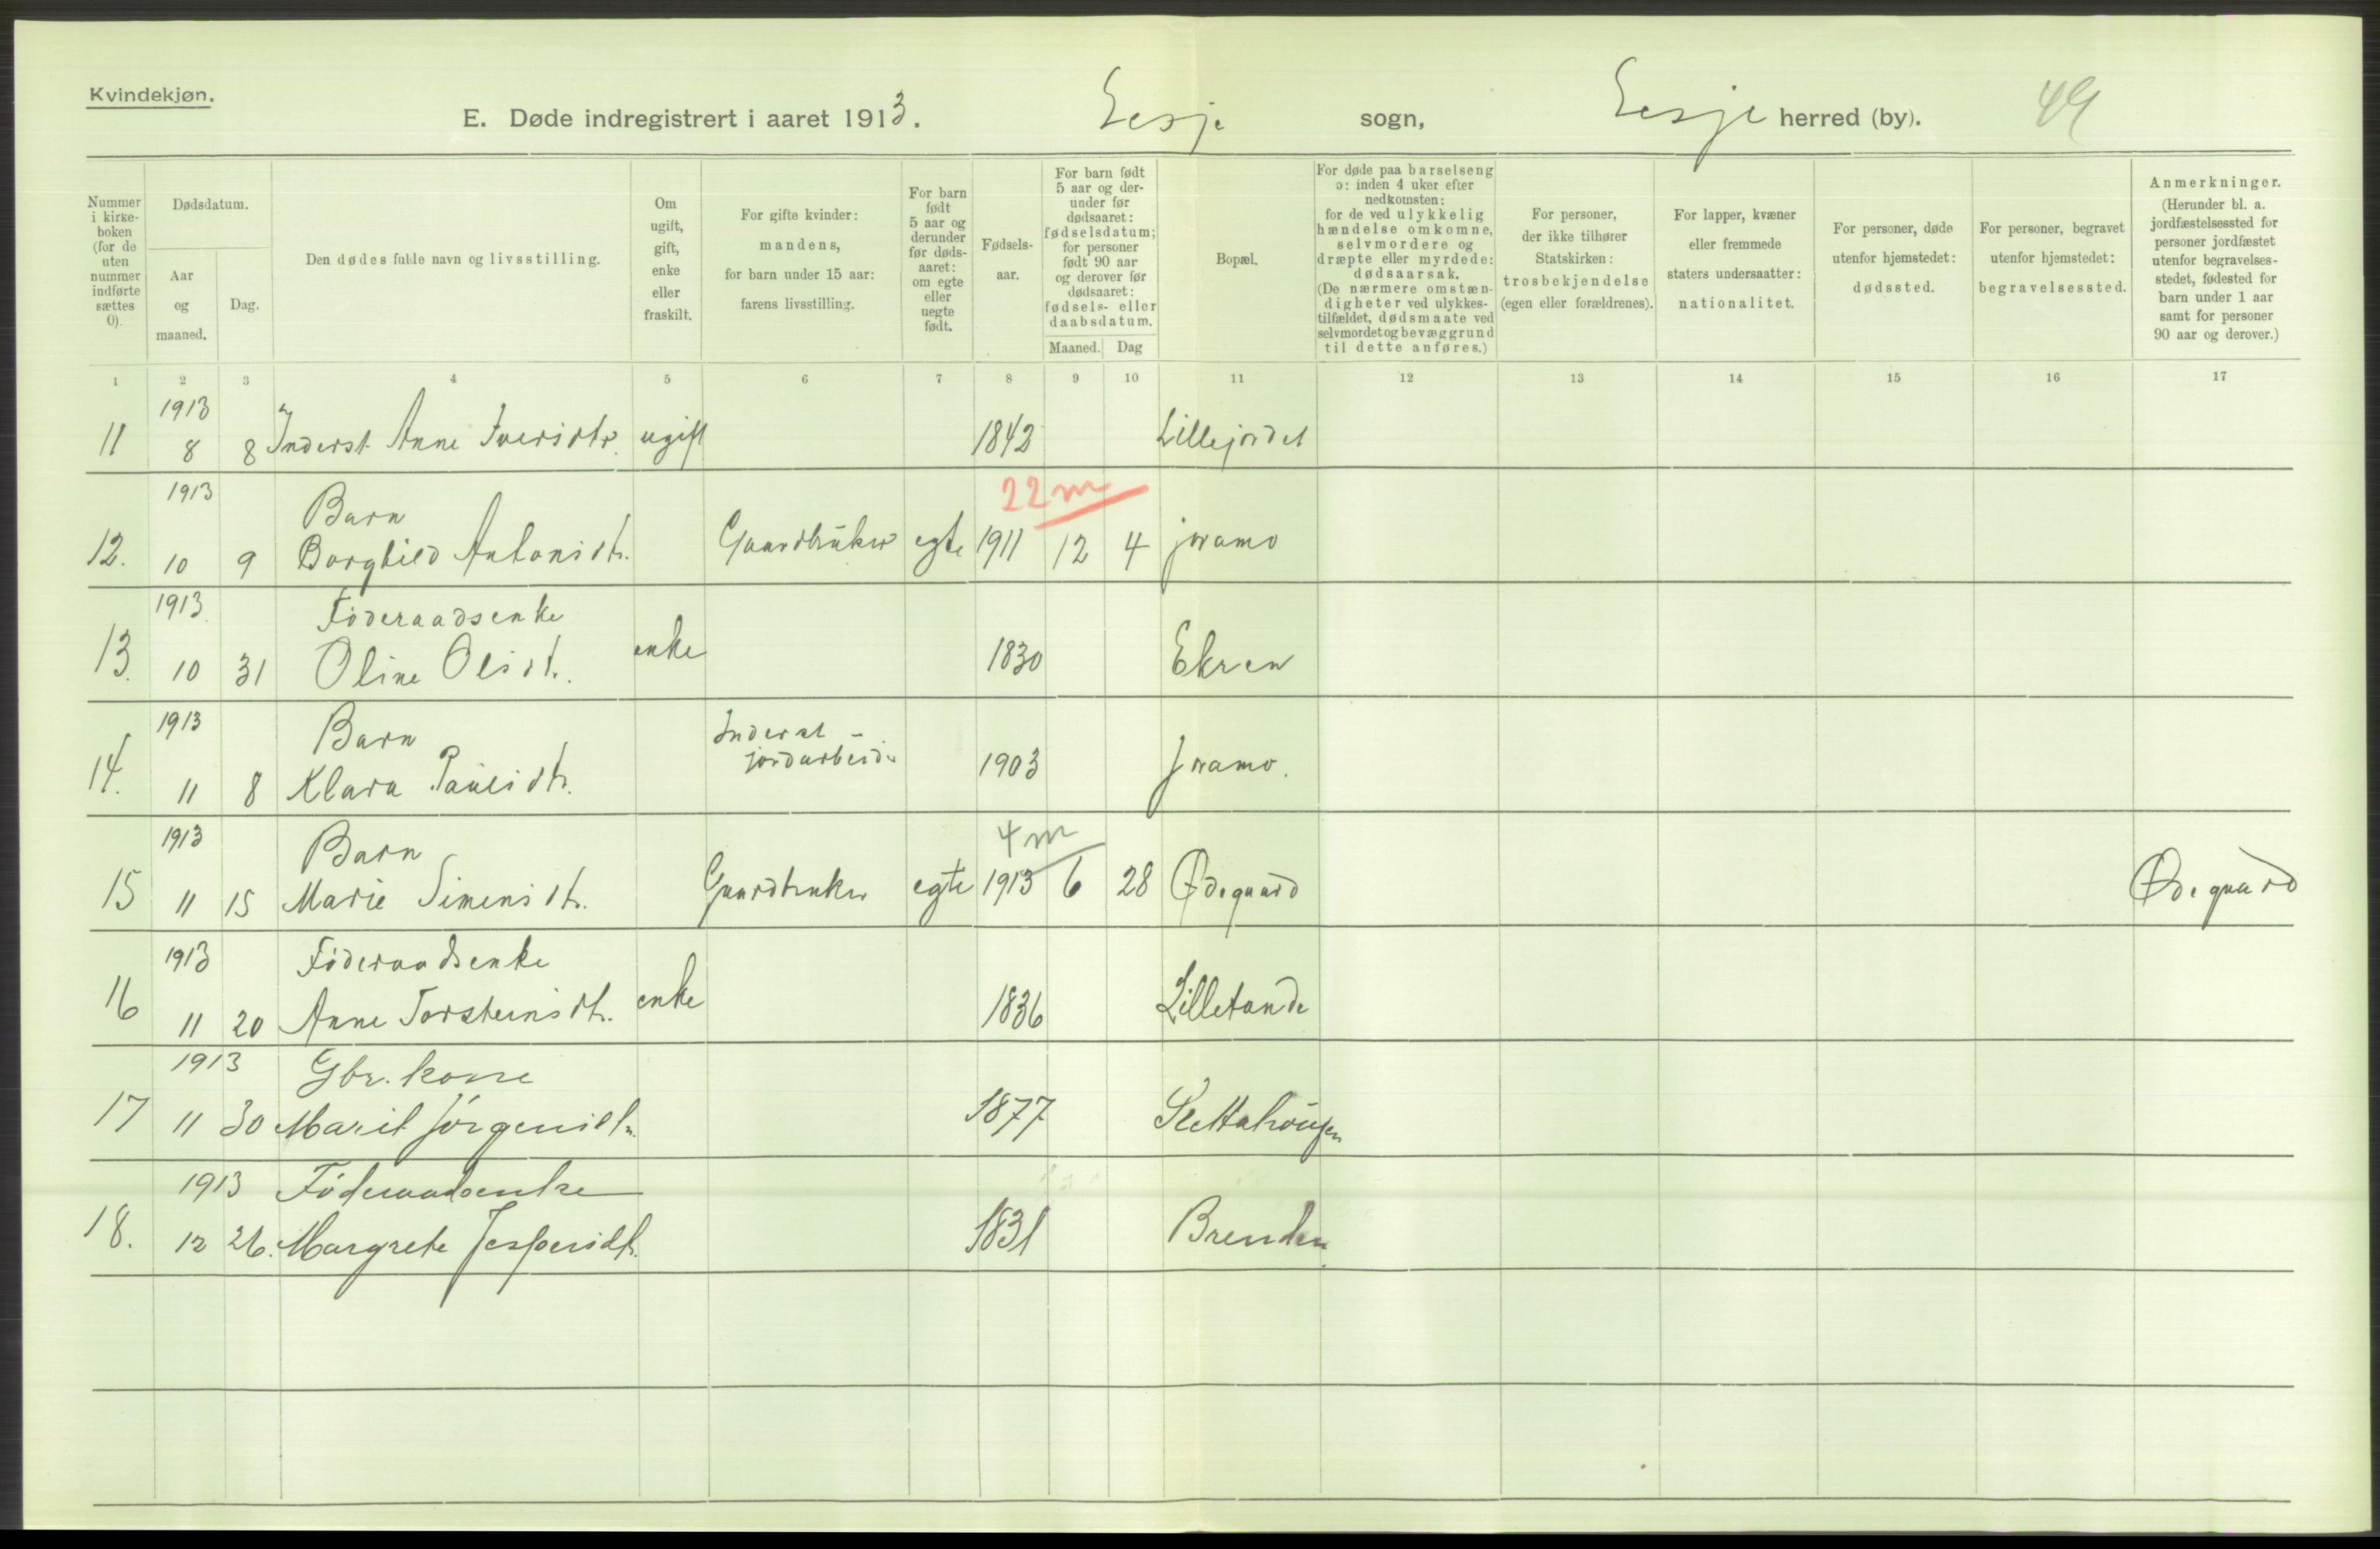 Kvindekjøn.
E. Døde indregistrert i aaret 1913. Lesje sogn, Lesje herred (by). 49
Nummer i kirke-boken (for de uten nummer indførte sættes 0).
Dødsdatum.
Aar og maaned.
Dag.
Den dødes fulde navn og livsstilling.
Om ugift, gift, enke eller fraskilt.
For gifte kvinder: mandens, for barn under 15 aar: farens livsstilling.
For barn født 5 aar og derunder før døds-aaret: om egte eller uegte født.
Fødsels-aar.
For barn født 5 aar og der-under før dødsaaret: fødselsdatum; for personer født 90 aar og derover før dødsaaret: fødsels- eller daabsdatum.
Maaned. Dag
Bopæl.
For døde paa barselseng ɔ: inden 4 uker efter nedkomsten: for de ved ulykkelig hændelse omkomne, selvmordere og dræpte eller myrdede: dødsaarsak. (De nærmere omstæn-digheter ved ulykkes-tilfældet, dødsmaate ved selvmordet og bevæggrund til dette anføres.)
For personer, der ikke tilhører Statskirken: trosbekjendelse (egen eller forældrenes).
For lapper, kvæner eller fremmede staters undersaatter: nationalitet.
For personer, døde utenfor hjemstedet: dødssted.
For personer, begravet utenfor hjemstedet: begravelsessted.
Anmerkninger. (Herunder bl. a. jordfæstelsessted for personer jordfæstet utenfor begravelses-stedet, fødested for barn under 1 aar samt for personer 90 aar og derover.)
1 2 3 4 5 6 7 8 9 10 11 12 13 14 15 16 17
1913
11 8 8 Inderst Anne Iversdtr. ugift 1842 Lillejordet
1913 22 m
Barn
12. 10 9 Borghild Antonsdtr. Gaardbruker egte 1911 12 4 joramo
1913
Föderaadsenke
13. 10 31 Oline Olsdtr. enke 1830 Ekren
1913 Barn Inderst
jordarbeider
14. 11 8 Klara Paulsdtr. 1903 Joramo.
1913 Barn 4 m
15 11 15 Marie Simensdtr. Gaardbruker egte 1913 6 28 Ødegaard Ødegaard
1913 Föderaadsenke
16 11 20 Anne Torsteinsdtr. enke 1836
1913 Gbr. kone
17 11 30 Marit Jörgensdtr. 1877
1913 Föderaadsenke
18. 12 26. Margrete Jespersdtr. 1831 Brenden